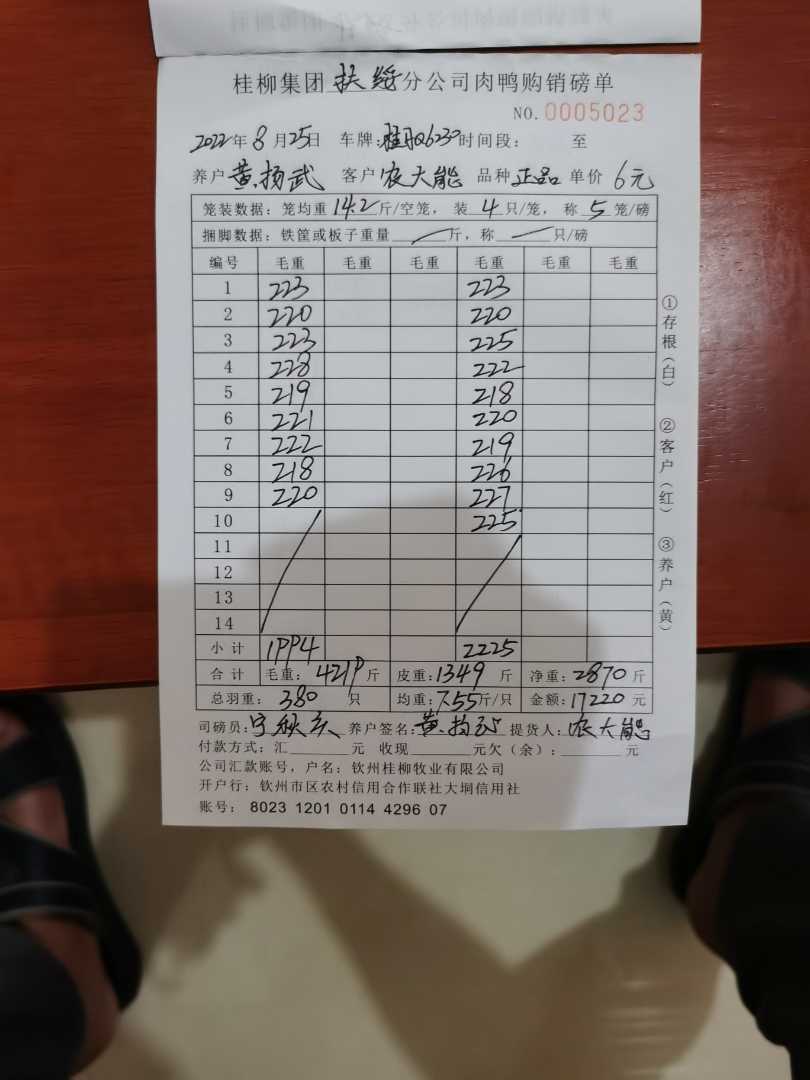 桂柳集团 扶绥 分公司肉鸭购销磅单
NO. 0005023
2022年 8 月 25日 车牌: Q6230 时间段: 至
养户 黄扬武 客户 农大能 品种 正品 单价 6元
笼装数据: 笼均重 14.2 斤/空笼, 装 4 只/笼, 称 5 笼/磅
捆脚数据: 铁筐或板子重量 / 斤, 称 — 只/磅
编号 毛重 毛重 毛重 毛重 毛重 毛重
1 223 223
2 220 220
3 223 225
4 228 222
5 219 218
6 221 220
7 222 219
8 218 226
9 220 227
10 225
11
12
13
14
小计 1994 2225
合计 毛重: 4219 斤 皮重: 1349 斤 净重: 2870 斤
总羽重: 380 只 均重: 7.55 斤/只 金额: 17220 元
司磅员: 宁秋 养户签名: 黄扬武 提货人: 农大能
付款方式: 汇 元 收现 元欠(余): 元
公司汇款账号, 户名: 钦州桂柳牧业有限公司
开户行: 钦州市区农村信用合作联社大垌信用社
账号: 8023 1201 0114 4296 07
①存根(白)
②客户(红)
③养户(黄)